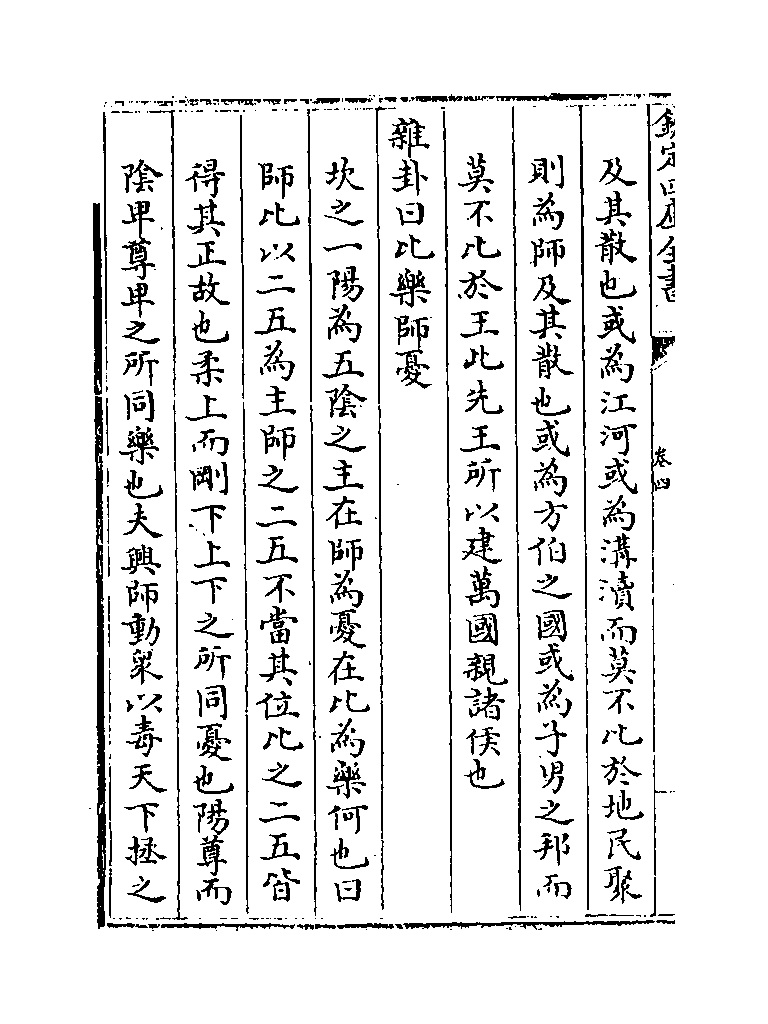 欽定四庫全書
卷四
及其散也或為江河或為溝瀆而莫不比於地民聚
則為師及其散也或為方伯之國或為子男之邦而
莫不比於王此先王所以建萬國親諸侯也
雜卦曰比樂師憂
坎之一陽為五陰之主在師為憂在比為樂何也曰
師比以二五為主師之二五不當其位比之二五皆
得其正故也柔上而剛下上下之所同憂也陽尊而
陰卑尊卑之所同樂也夫興師動眾以毒天下拯之